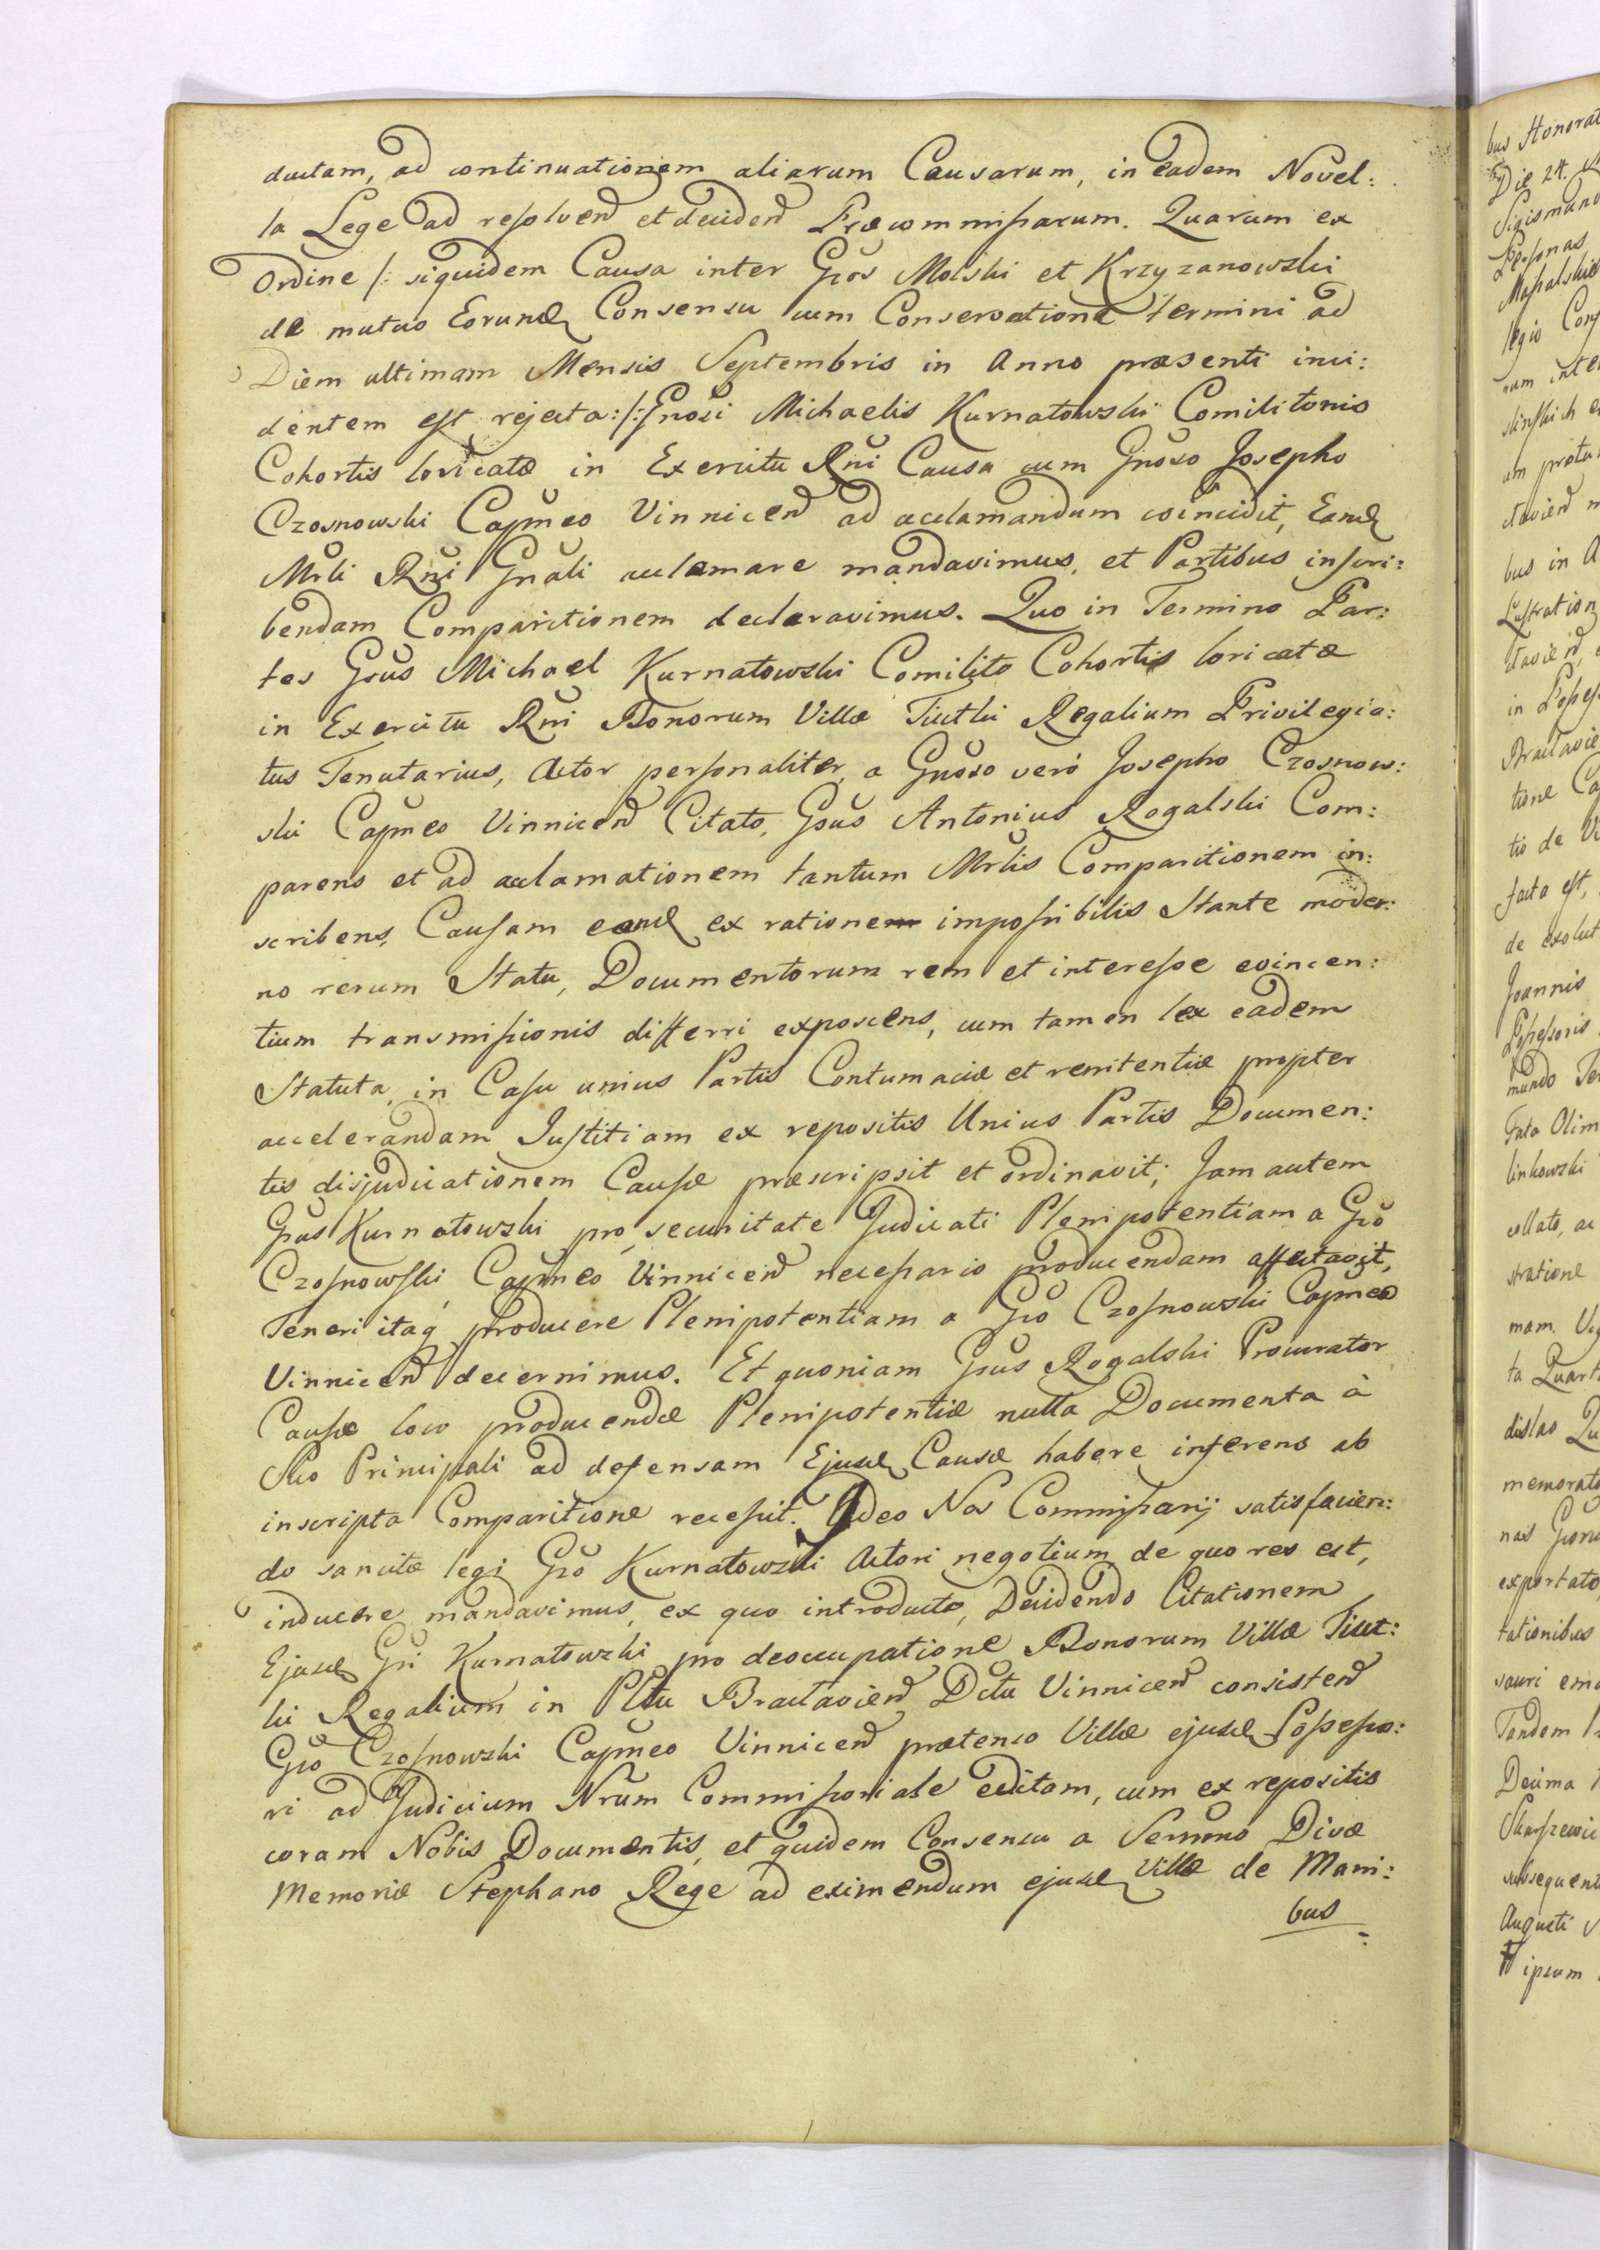 ductam, ad continuationem aliarum Causarum, in eadem Novel:
la Lege ad resolvend et decidend Præcommissarum. Quarum ex
Ordine /: siquidem Causa inter Gsos Molski et Krzyzanowski
de mutuo Eorund Consensu cum Conservatione termini ad
Diem ultimam Mensis Septembris in Anno præsenti inci:
dentem est rejecta:/: Gnosi Michaelis Kurnatowski Comilitonis
Cohortis loricatæ in Exercitu Rni Causa cum Gnoso Josepho
Czosnowski Capneo Vinnicend ad acclamandum coincidit, Eand
Mrli Rni Gnali acclamare mandavimus, et Partibus inscri:
bendam Comparitionem declaravimus. Quo in Termino Par:
tes Gsus Michael Kurnatowski Comilito Cohortis loricatæ
in Exercitu Rni Bonorum Villæ Tiutki Regalium Privilegia:
tus Tenutarius, Actor personaliter, a Gnoso veró Josepho Czosnow:
ski Capneo Vinnicend Citato, Gsus Antonius Rogalski Com:
parens et ad acclamationem tantum Mrlis Comparitionem in:
scribens, Causam eand ex ratione impossibilis Stante moder:
no rerum Statu, Documentorum rem et interesse evincen:
tium transmissionis differri exposcens, cum tamen lex eadem
Statuta, in Casu unius Partis Contumaciæ et renitentiæ propter
accelerandam Justitiam ex repositis Unius Partis Documen:
tis disjudicationem Causæ præscripsit et ordinavit; Jam autem
Gsus Kurnatowski pro securitate Judicati Plenipotentiam a Gso
Czosnowski Capneo Vinnicend necessario producendam affectavit,
Teneri itaq producere Plenipotentiam a Gso Czosnowski Capneo
Vinnicend decernimus. Et quoniam Gsus Rogalski Procurator
Causæ loco producendæ Plenipotentiæ nulla Documenta à
Suo Principali ad defensam Ejusd Causæ habere inferens ab
inscripta Comparitione recessit. Ideo Nos Commissarij satisfacien:
do sancitæ legi Gso Kurnatowski Actori negotium de quo res est,
inducere mandavimus, ex quo introducto, Decidendo Citationem
Ejusd Gsi Kurnatowski pro deoccupatione Bonorum Villæ Tiut:
ki Regalium in Pltu Braclaviend Dctu Vinnicend consistend
Gso Czosnowski Capneo Vinnicend prætenso Villæ ejusd Possesso:
ri ad Judicium Nrum Commissoriale editam, cum ex repositis
coram Nobis Documentis, et quidem Consensu a Sermno Divæ
Memoriæ Stephano Rege ad eximendum ejusd Villæ de Mani:
bus